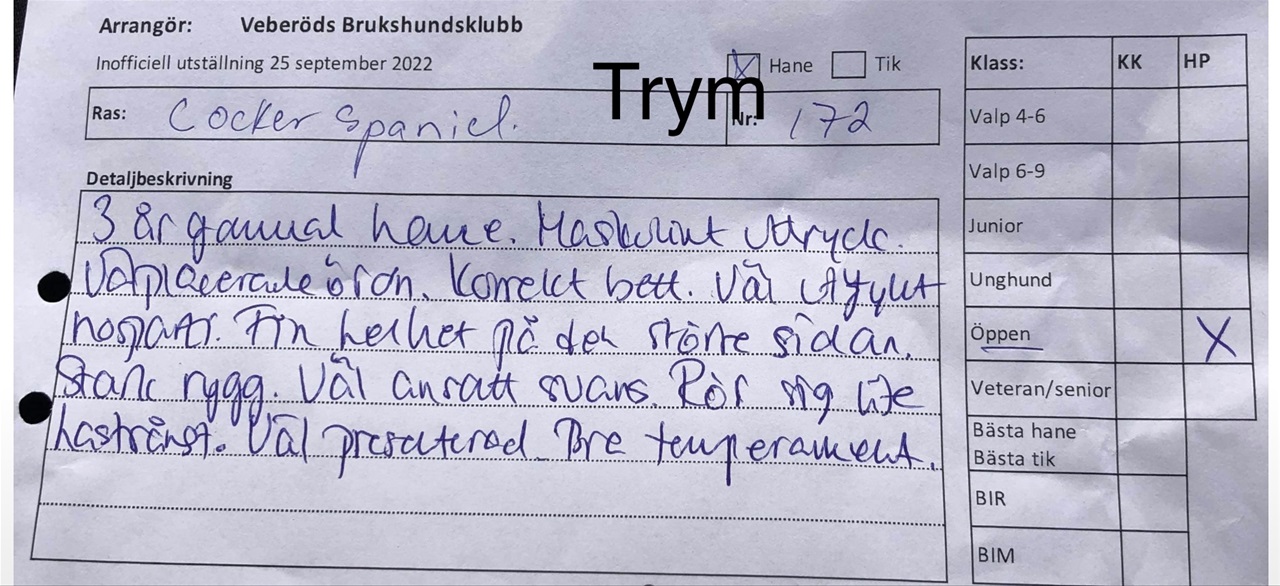 Arrangör: Veberöds Brukshundsklubb
Inofficiell utställning 25 september 2022
Hane Tik
Trym
Ras: Cocker Spaniel. Nr: 172
Detaljbeskrivning
3 år gammal hane. Maskulint uttryck.
Välplacerade öron. Korrekt bett. Väl utfyllt
nosparti. Fin helhet på den större sidan.
Stark rygg. Väl ansatt svans. Rör sig lite
hastrångt. Väl presenterad Bra temperament.
Klass: KK HP
Valp 4-6
Valp 6-9
Junior
Unghund
Öppen X
Veteran/senior
Bästa hane
Bästa tik
BIR
BIM